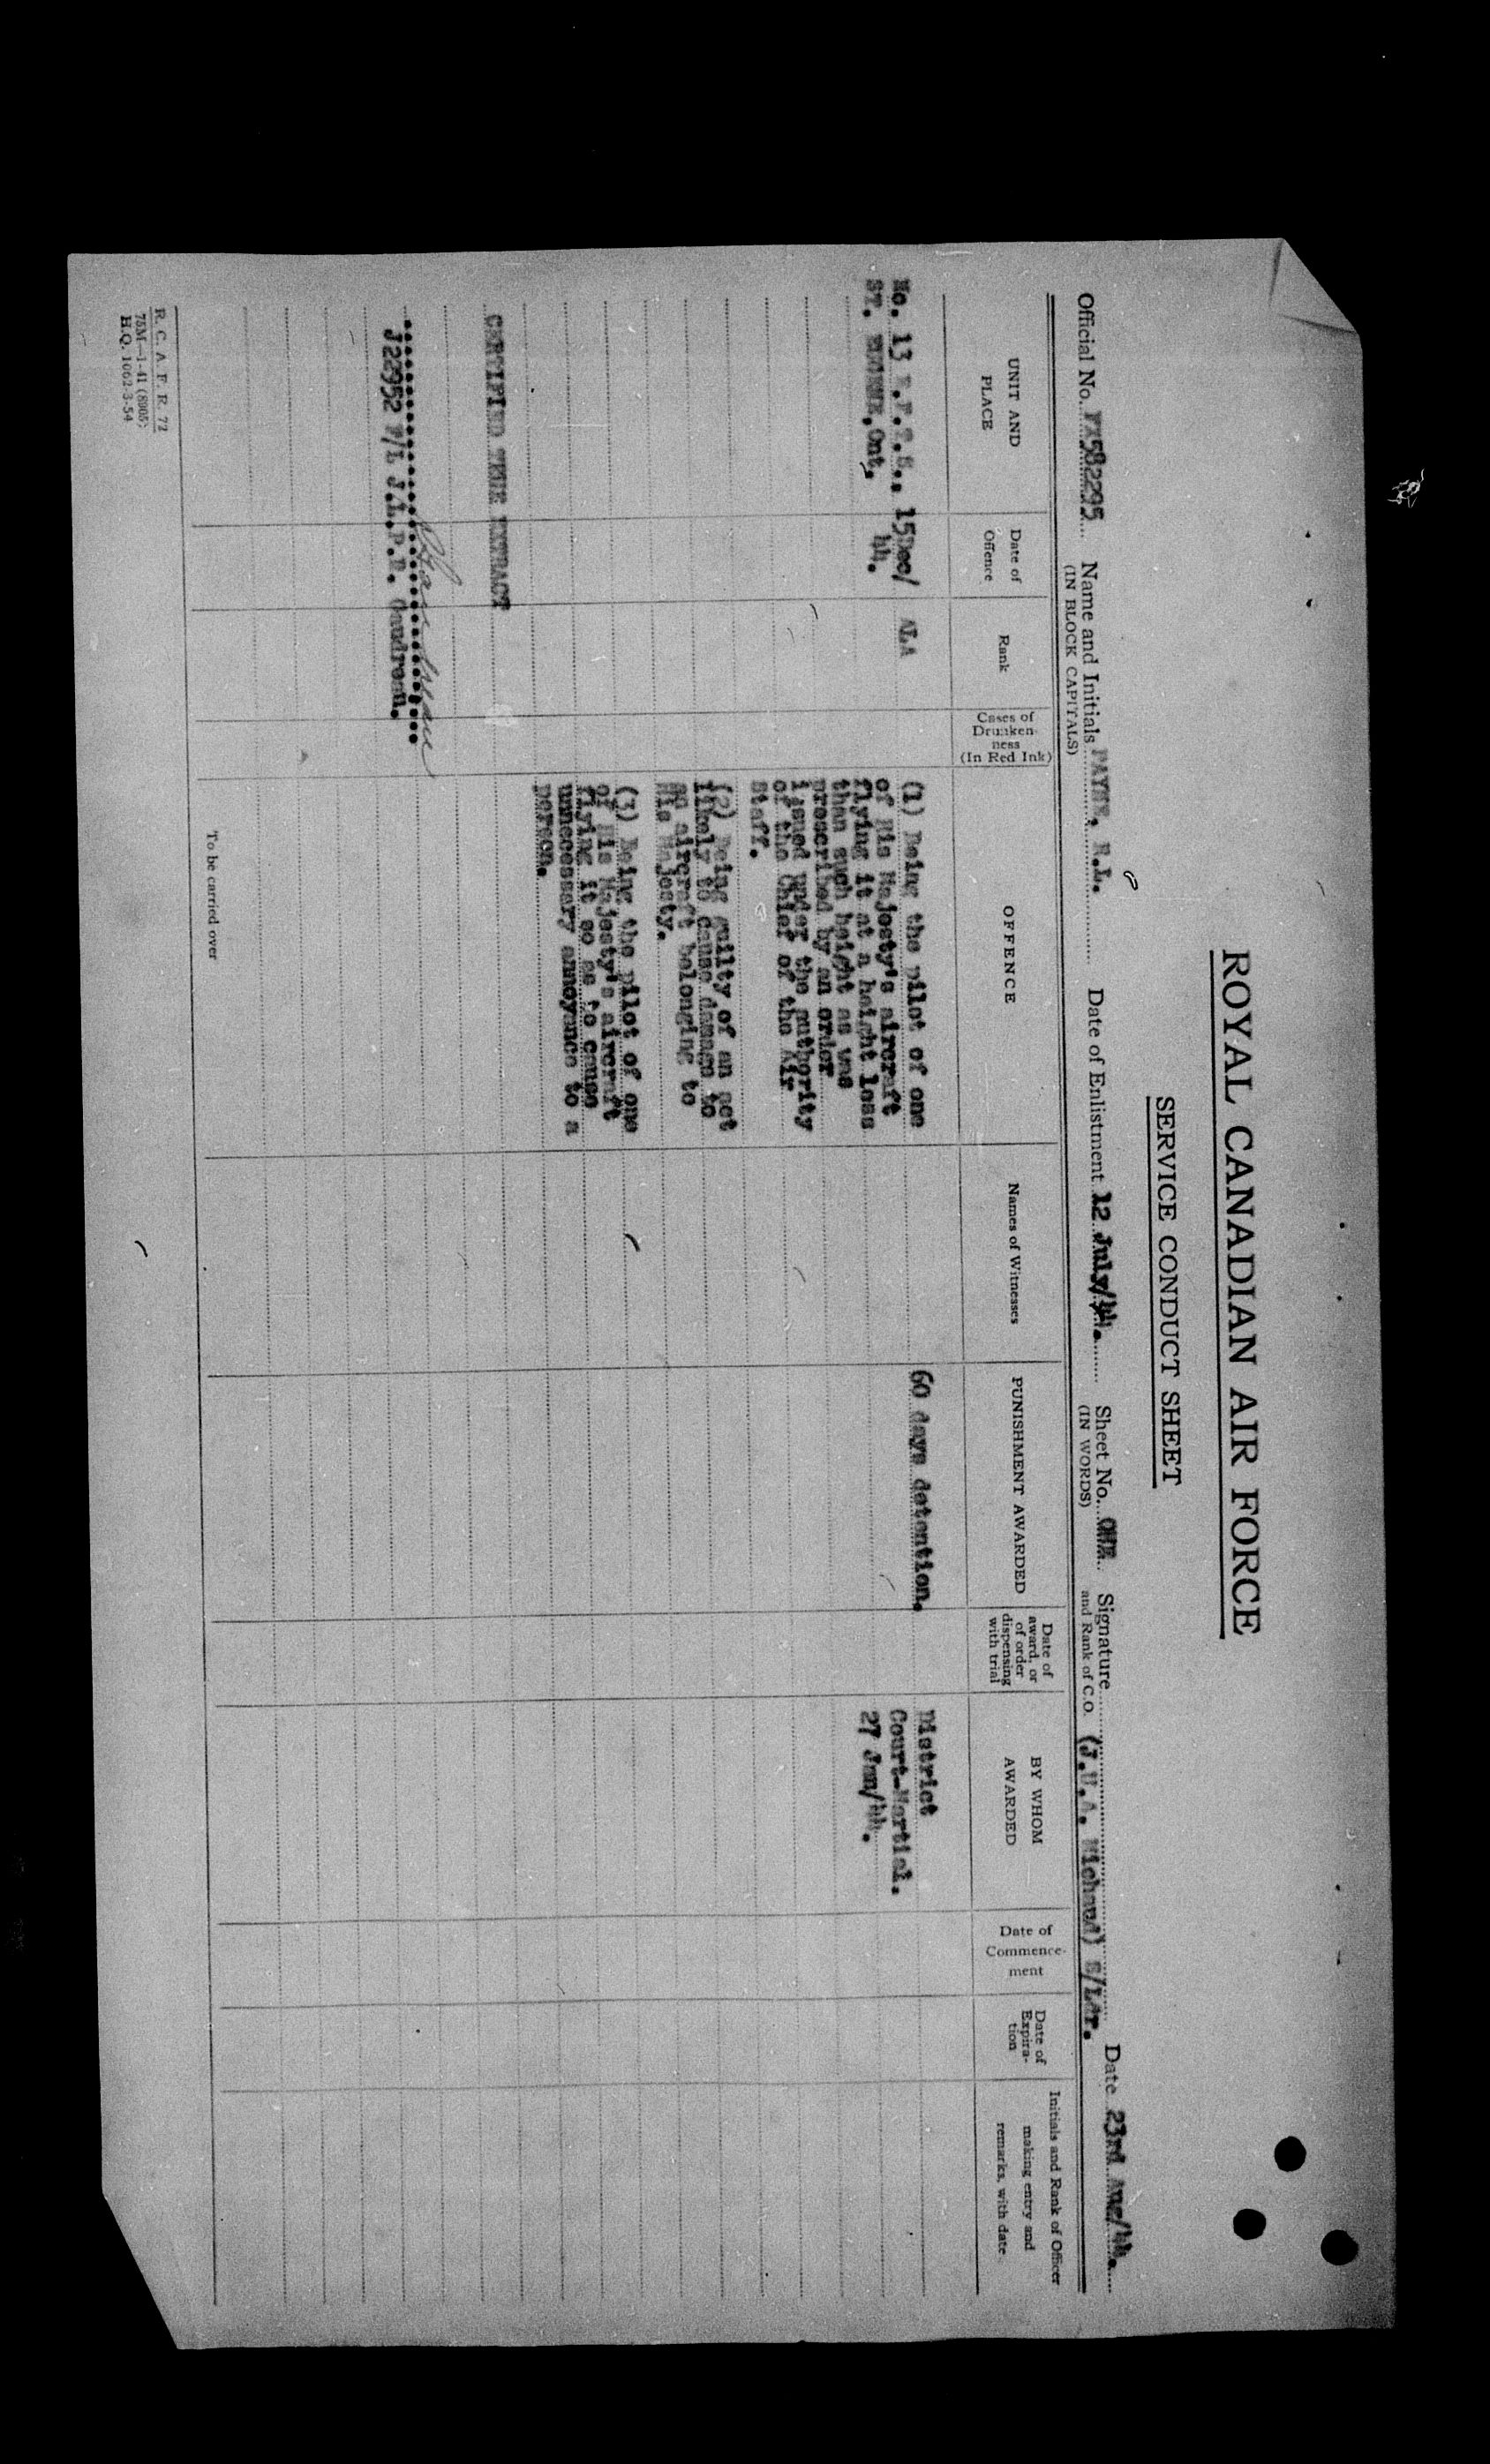 ROYAL CANADIAN AIR FORCE
SERVICE CONDUCT SHEET
Official No. FX582295 Name and Initials PAYNE, R.L. Date of Enlistment 12 July/44. Sheet No. ONE Signature Date 23rd Aug/44.
(IN BLOCK CAPITALS) (IN WORDS) and Rank of C.O. (J.U.A. Michaud) S/Ldr.
UNIT AND PLACE
Date of Offence
Rank
Cases of Drunken-ness (In Red Ink)
OFFENCE
Names of Witnesses
PUNISHMENT AWARDED
Date of award, or of order dispensing with trial
BY WHOM AWARDED
Date of Commence-ment
Date of Expira-tion
Initials and Rank of Officer making entry and remarks, with date
No. 13 E.F.T.S., 15Dec/ ALA
ST. EUGENE, Ont. 44.
(1) Being the pilot of one
of His Majesty's aircraft
flying it at a height less
than such height as was
prescribed by an order
issued under the authority
of the Chief of the Air
Staff.
(2) Being guilty of an act
likely to cause damage to
an aircraft belonging to
His Majesty.
(3) Being the pilot of one
of His Majesty's aircraft
flying it so as to cause
unnecessary annoyance to a
person.
60 days detention.
District
Court-Martial.
27 Jan/44.
CERTIFIED TRUE EXTRACT
Gaudreau
J22952 F/L J.L.P.R. Gaudreau.
To be carried over
R. C. A. F. R. 72
75M—1-41 (8005)
H.Q. 1062-3-54